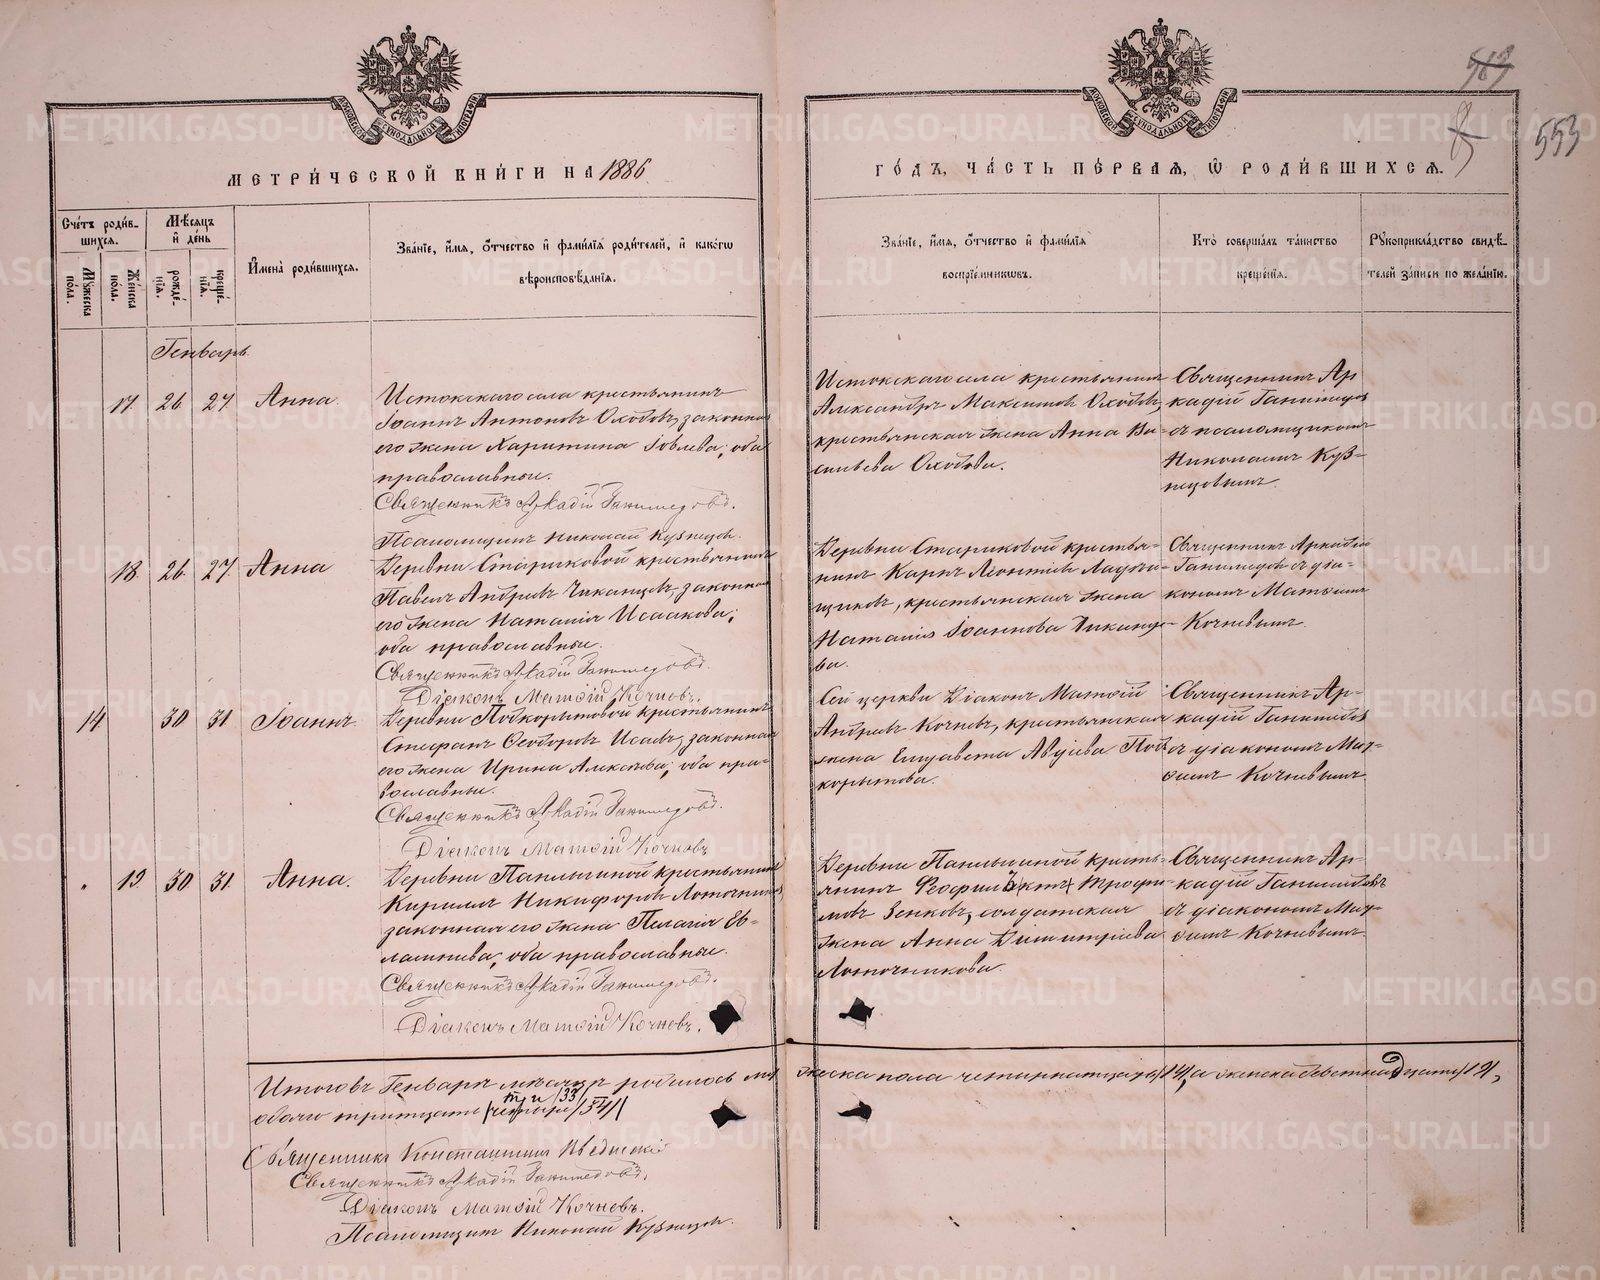 МЕТРИ́ЧЕСКОЙ КНИ́ГИ НА 1886
ГО́ДЪ, ЧА́СТЬ ПЕ́РВАѦ, Ѽ РОДИ́ВШИХСѦ.
563
553
Сче́тъ роди́в-
шихсѧ.
Мѣ́сѧцъ
и҆ де́нь
Мꙋ́жеска
по́ла.
Же́нска
по́ла.
рожде́-
нїѧ.
креще́-
нїѧ.
И҆мена̀ роди́вшихсѧ.
Зва́нїе, и҆́мѧ, ѻ҆́тчество и҆ фами́лїѧ роди́телей, и҆ како́гѡ
вѣроисповѣ́данїѧ.
Зва́нїе, и҆́мѧ, ѻ҆́тчество и҆ фами́лїѧ
воспрїе́мникѡвъ.
Кто̀ соверша́лъ та́инство
креще́нїѧ.
Рꙋкоприкла́дство свидѣ́-
телей за́писи по жела́нїю.
Генварь.
17. 26. 27. Анна.
Истокскаго села крестьянинъ
Іоаннъ Антоновъ Оходовъ, законная
его жена Харитина Іовлева; оба
православные.
Священникъ Аркадій Ганимедовъ.
Псаломщикъ Николай Кузнецов.
Истокскаго села крестьянинъ
Александръ Максимов Оходовъ,
крестьянская жена Анна Ва-
сильева Оходова.
Священникъ Ар
кадій Ганимедов
съ псаломщикомъ
Николаемъ Куз-
нецовымъ.
18. 26. 27. Анна
Деревни Стариковой крестьянинъ
Павелъ Андреевъ Чиканцевъ, законная
его жена Наталія Исаакова;
оба православные.
Священникъ Аркадій Ганимедовъ.
Діаконъ Матѳій Кочневъ.
Деревни Стариковой крестья-
нинъ Карпъ Леонтіев
щиковъ, крестьянская жена
Наталія Іоаннова Чиканце-
ва.
Священникъ Аркадій
Ганимедов съ діа-
кономъ Матѳіемъ
Кочневымъ.
14. 30 31. Іоаннъ.
Деревни Подкорытовой крестьянинъ
Стефанъ Ѳеодоровъ Исаевъ, законная
его жена Ирина Алексѣева; оба пра-
вославные.
Священникъ Аркадій Ганимедовъ.
Діаконъ Матѳій Кочневъ
Сей церкви Діаконъ Матѳій
Андреевъ Кочневъ, крестьянская
жена Елизавета Авдіева Под-
корытова.
Священникъ Ар-
кадій Ганимедов
съ діакономъ Мат-
ѳіемъ Кочневымъ
19. 30 31. Анна.
Деревни Паньшиной крестьянинъ
Кириллъ Никифоровъ Лоточников
законная его жена Пелагія Ев-
лампіева; оба православные.
Священникъ Аркадій Ганимедовъ.
Діаконъ Матѳій Кочневъ.
Деревни Паньшиной кресть-
янинъ Трофи-
мовъ Зенковъ, солдатская
жена Анна Димитріева
Лоточникова.
Священникъ Ар-
кадій Ганимедовъ
съ діакономъ Мат-
ѳіемъ Кочневымъ.
Итогов Генварѣ мѣсяцѣ родилось мужеска пола четырнатцать /14/, а женска девятнадцать /19/,
три /33/
обоего тритцать (четыре /34/)
Священникъ Константинъ
Священникъ Аркадій Ганимедовъ.
Діаконъ Матѳій Кочневъ.
Псаломщикъ Николай Кузнецов.
METRIKI.GASO-URAL.RU